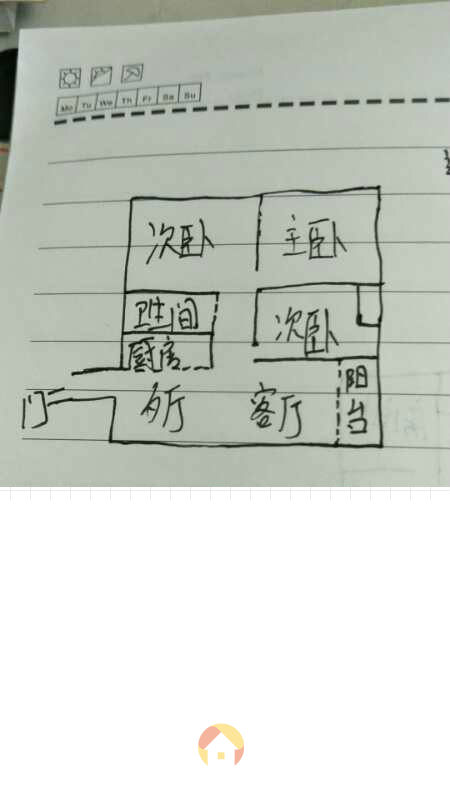 Mo Tu We Th Fr Sa Su
次卧 主卧
卫生间
次卧
厨房
阳台
门
厅 客厅